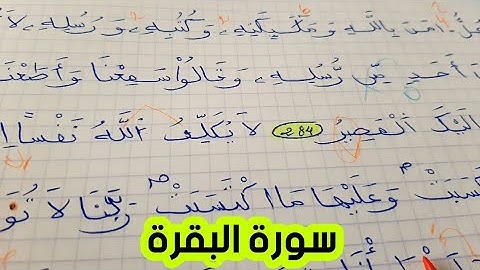 كُلٌّ ءَامَنَ بِاللَّهِ وَمَلَٰٓئِكَتِهِۦ وَكُتُبِهِۦ وَرُسُلِهِۦ لَا
أَحَدٍ مِّن رُّسُلِهِۦ وَقَالُواْ سَمِعْنَا وَأَطَعْنَا
إِلَيْكَ اَلْمَصِيرُ 284 لَا يُكَلِّفُ اُللَّهُ نَفْساً اِ
كَسَبَتْ وَعَلَيْهَا مَا اَكْتَسَبَتْ رَبَّنَا لَا تُوَ
سورة البقرة